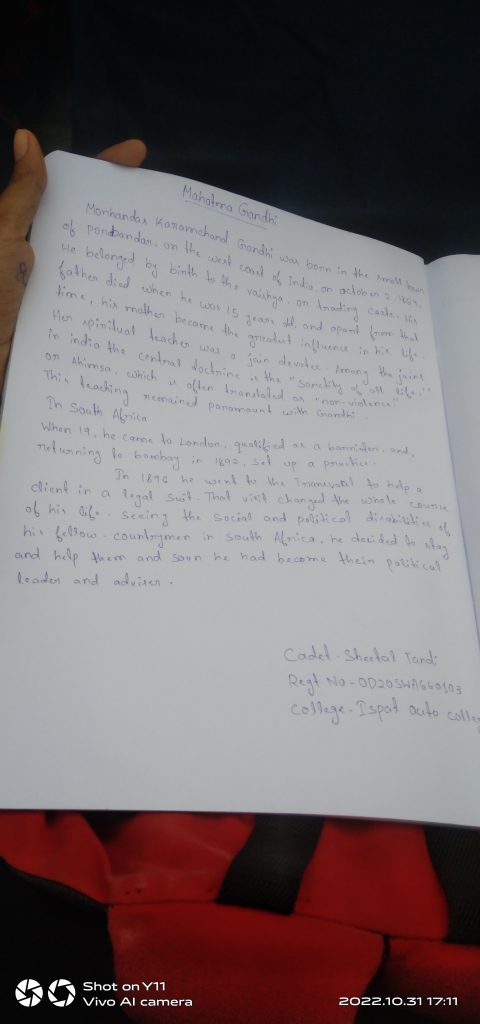 Mahatma Gandhi
Monhandas Karamchand Gandhi was born in the small town
of porbandar, on the west coast of India, on october 2, 1869.
He belonged by birth to the vaishya, on trading caste. His
father died when he was 15 years old, and apart from that
time, his mother became the greatest influence in his life.
Her spiritual teacher was a jain devotee. Among the jains
in india the central doctrine is the "sanctity of all life,"
or ahimsa, which is often translated as "non-violence".
This teaching remained paramount with Gandhi.
In South Africa
When 19, he came to London, qualified as a barrister, and,
returning to bombay in 1892, set up a practice.
In 1896 he went to the Transvaal to help a
client in a legal suit. That visit changed the whole course
of his life. seeing the social and political disabilities of
his fellow-countrymen in south Africa, he decided to stay
and help them and soon he had become their political
leader and adviser.
Cadet-Sheetal Tandi
Regt No-OD20SWA660103
College-Ispat auto college
Shot on Y11
Vivo AI camera
2022.10.31 17:11